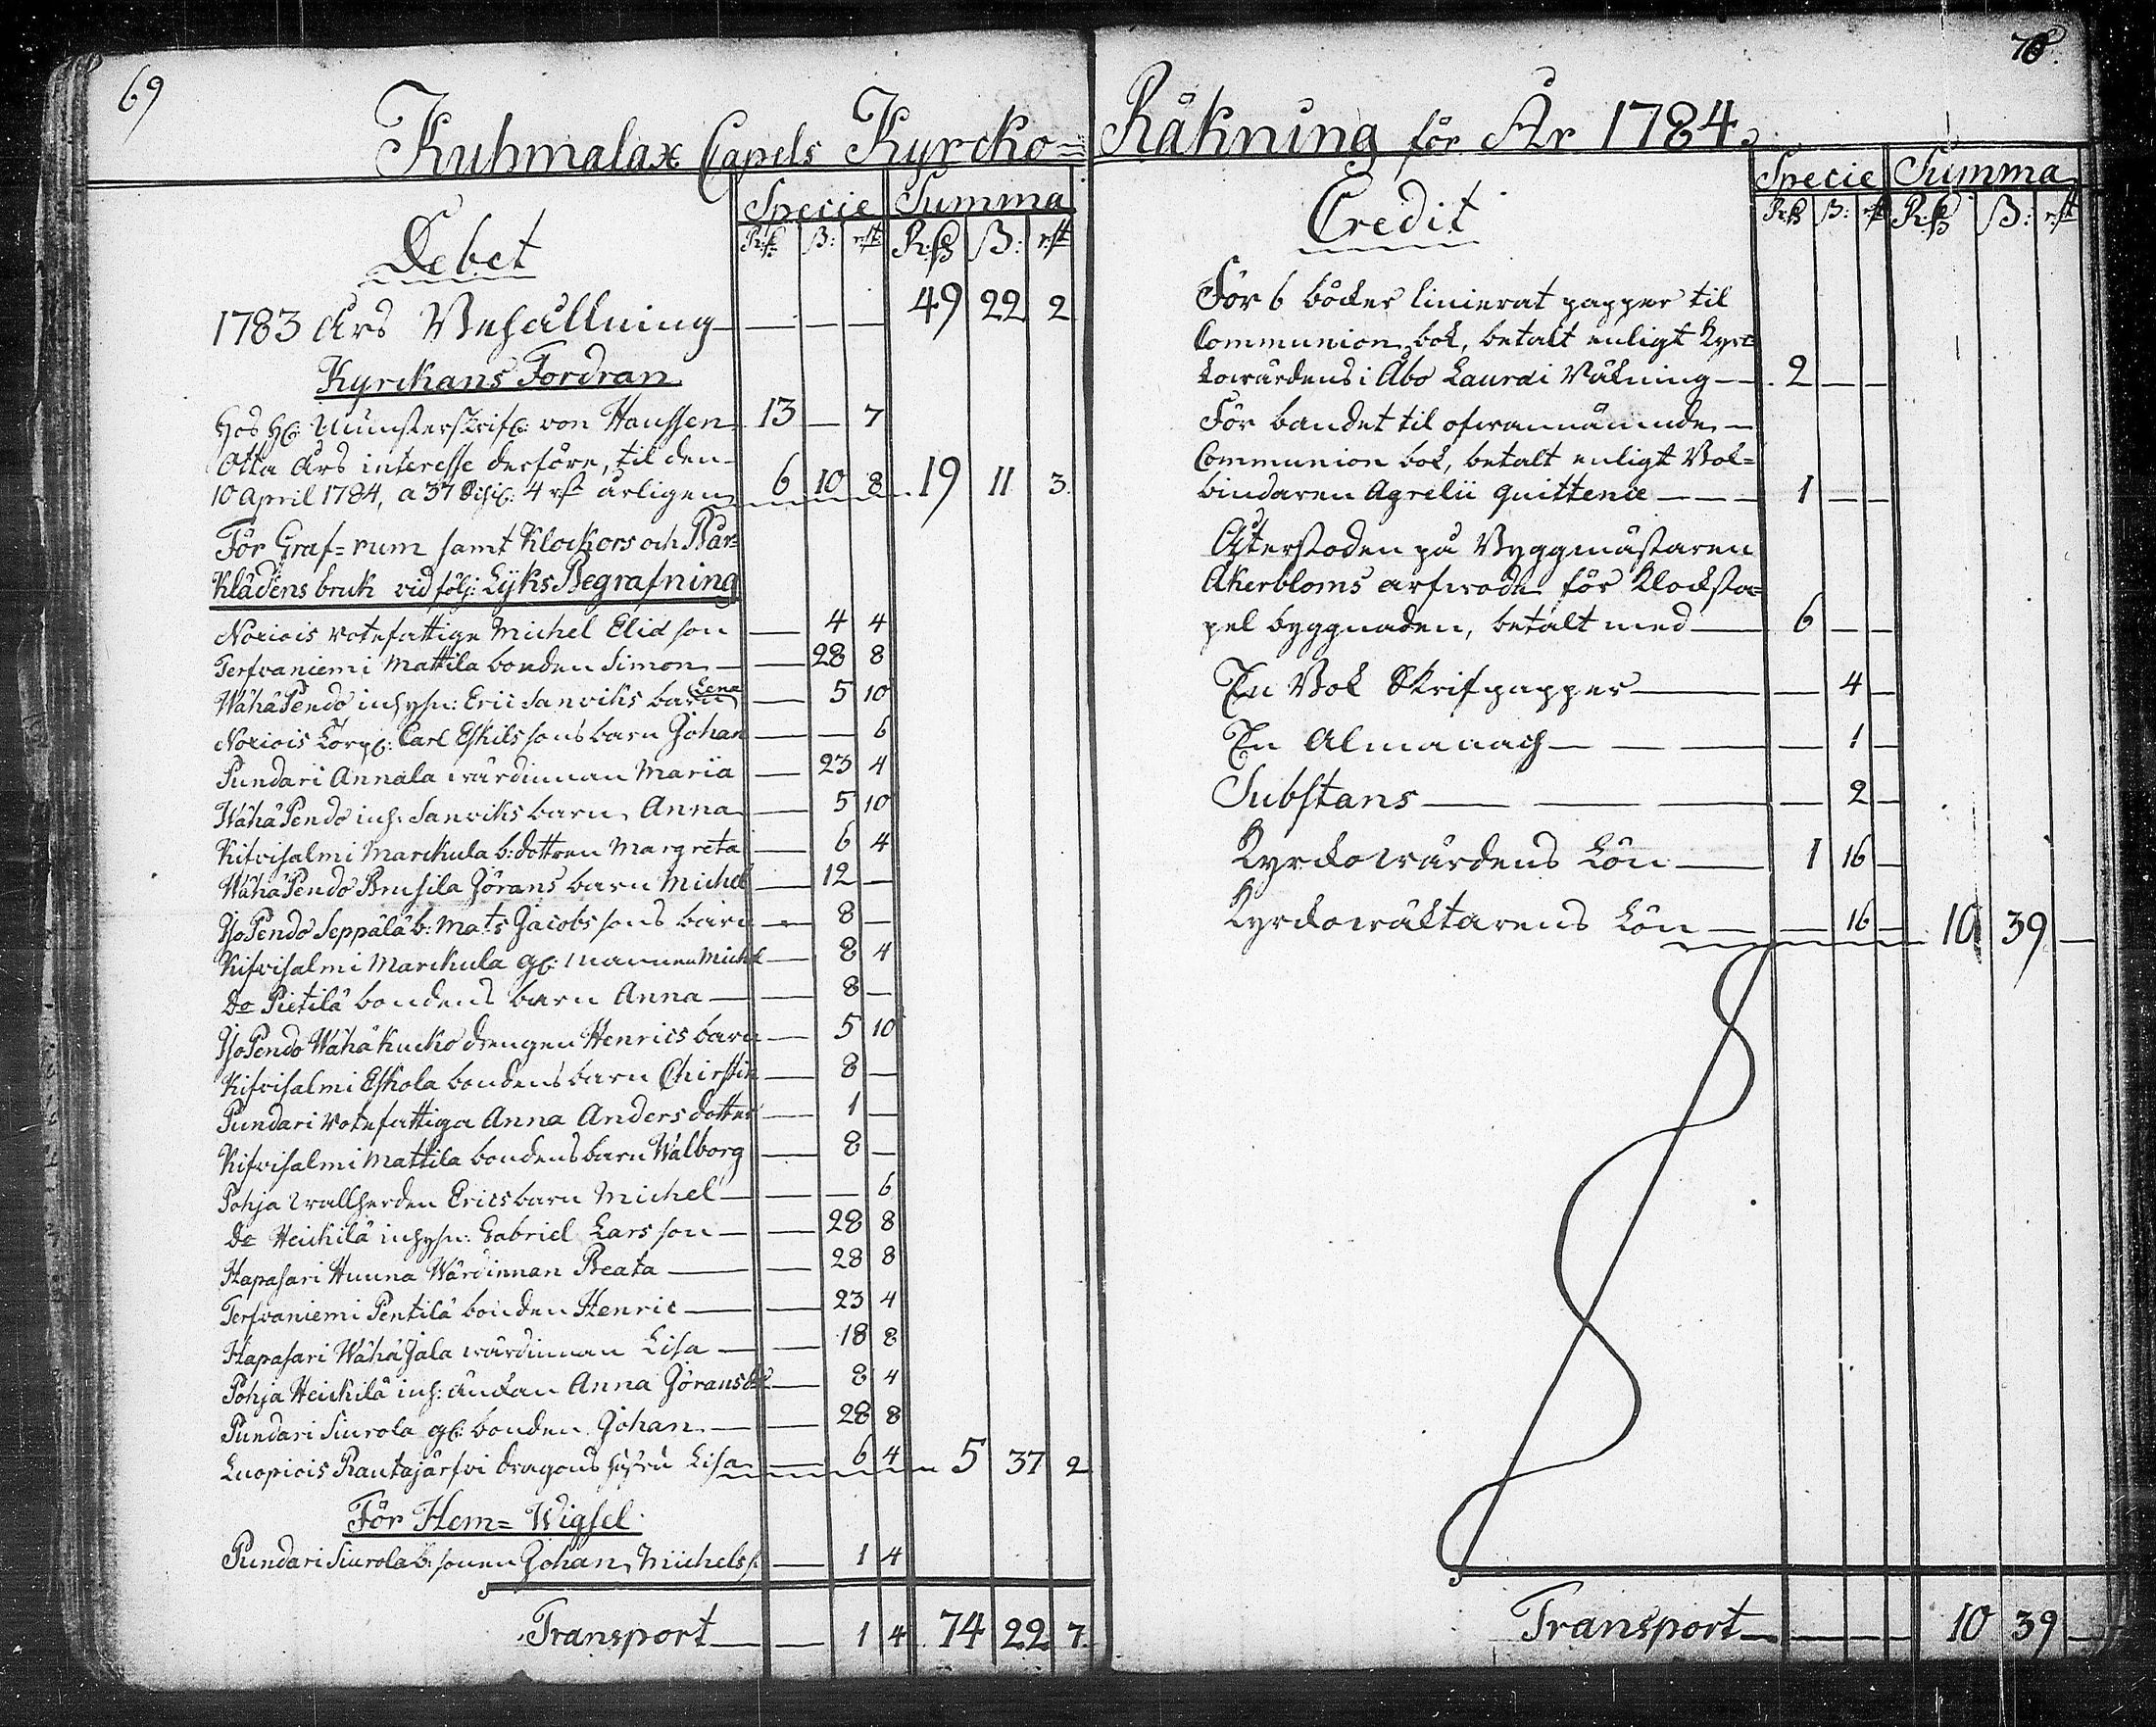 69
Kuhmalax Capels Kyrcko=
Debet
Specie Summa
R:ß ß: rst: R:ß ß: rst
1783 Års Behållning — — — 49 22 2
Kyrckans Fordran
Hos H: Münsterskrif: von Haussen 13 — 7
Otta Års interesse derföre, til den
10 April 1784, a 37 4 rst årligen 6 10 8 19 11 3
För Graf=rum samt Klockors och Bår=
klädens bruk vid följ: Lijks Begrafning
rotefattige Michel Elia son — 4 4
Terfvaniemi Mattila bonden Simon — 28 8
WähäPendo inhysn: Eric Sanviks barn Lena — 5 10
Carl Eskils sons barn Johan — — 6
Pundari Annala wärdinnan Maria — 23 4
WähäPendo inh: Sanviks barn Anna — 5 10
Kifvisalmi Marckula b:dottren Margreta — 6 4
WähäPendo Görans barn Michel — 12 —
IsoPendo Seppälä b: Mats Jacobs sons barn — 8 —
Kifvisalmi Marckula g: mannen Michel — 8 4
Do Pietilä bondens barn Anna — 8 —
IsoPendo Wähäkucko drengen Henrics barn — 5 10
Kifvisalmi Eskola bondens barn Chirstin — 8 —
Pundari rotefattiga Anna Anders dotter — 1 —
Kifvisalmi Mattila bondens barn Walborg — 8 —
Pohja wallherden Erics barn Michel — — 6
Do Heickilä inhysn: Gabriel Lars son — 28 8
Hapasari Huuna Wärdinnan Beata — 28 8
Terfvaniemi Pentilä bonden Henric — 23 4
Hapasari WähäJala wärdinnan Lisa — 18 8
Pohja Heickilä inh: änckan Anna Görans dr — 8 4
Pundari Siurola g: bonden Johan — 28 8
Luopiois Rautajärfvi dragons hustru Lisa — 6 4 5 37 2
För Hem=Wigsel
Pundari Siurola b: sonen Johan Michels s: — 1 4
Transport — — 1 4 74 22 7
70.
Räkning för År 1784.
Credit
Specie Summa
R:ß ß: rst R:ß ß: rst
För 6 böcker linierat papper til
Communion bok, betalt enligt Kyrc
kowärdens i Åbo Lauræi Räkning — 2 — —
För bandet til ofwannämnde —
Communion bok, betalt enligt Bok=
bindaren Agrelii quittence — 1 — —
Återstoden på Byggmästaren
Åkerbloms arfwode för Klocksta=
pel byggnaden, betalt med — 6 — —
En Bok Skrifpapper — — 4 —
En Almanach — — 1 —
Substans — — 2 —
Kyrckowärdens Lön — 1 16 —
Kyrckowäktarens Lön — — 16 — 10 39 —
Transport — — — — 10 39 —